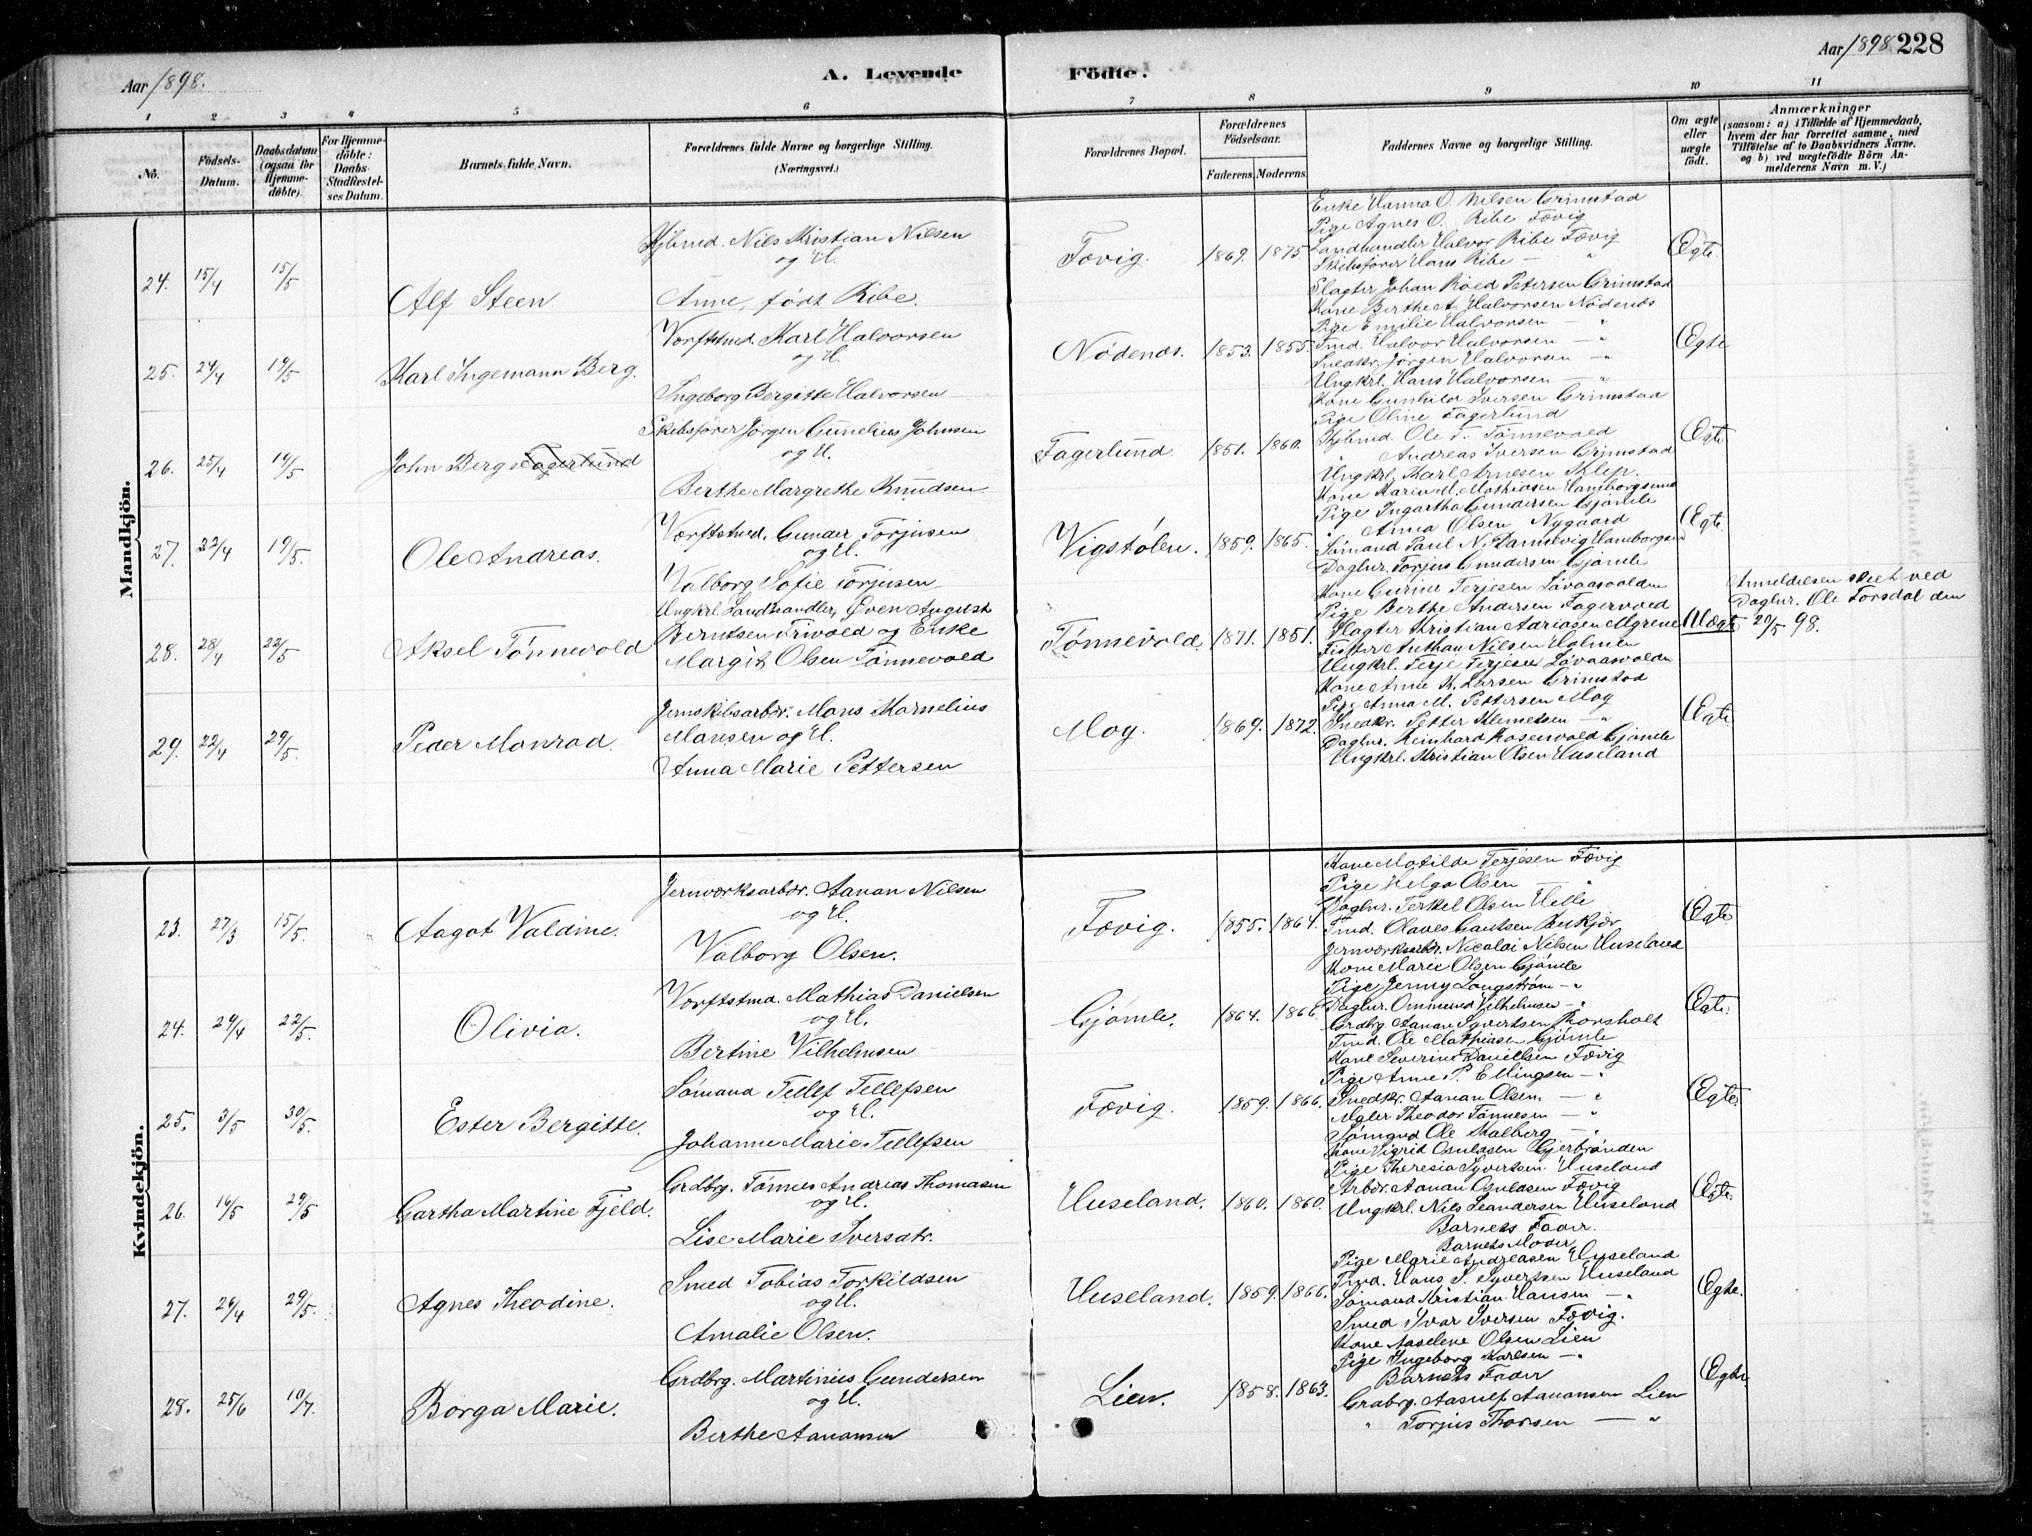 Aar 1898.
A. Levende
Födte.
Aar 1898 228
1 2 3 4 5 6 7 8 9 10 11
No.
Födsels-Datum.
Daabsdatum (ogsaa for Hjemmedöbte).
For Hjemmedöbte: Daabs-Stadfæstelses Datum.
Barnets fulde Navn.
Forældrenes fulde Navne og borgerlige Stilling.
(Næringsvei.)
Forældrenes Bopæl.
Forældrenes Födselsaar.
Faderens. Moderens.
Faddernes Navne og borgerlige Stilling.
Om ægte eller uægte födt.
Anmærkninger
(saasom: a) i Tilfælde af Hjemmedaab, hvem der har forrettet samme, med Tilföielse af to Daabsvidners Navne, og b) ved uægtefödte Börn Anmelderens Navn m. V.)
Mandkjön.
24. 15/4 15/5 Alf Steen
Nils Kristian Nilsen
og H.
Anne, født Ribe.
Fævig. 1869. 1875.
Enke Hanna O. Nilsen Grimstad
Pige Agnes O. Ribe Fævig
Landhandler Halvor Ribe Fævig
Skibsfører Hans Ribe — "
Slagter Johan Roed Petersen Grimstad
Ægte.
25. 24/4 19/5 Karl Ingemann Berg.
Værftstmd. Karl Halvorsen
og H.
Ingeborg Bergitte Halvorsen
Nødenes. 1853. 1855.
Kone Berthe A. Halvorsen Nødenes
Pige Emilie Halvorsen — "
Tmd. Halvor Halvorsen — "
Snedkr. Jørgen Halvorsen — "
Ungkrl. Hans Halvorsen — "
Ægte
26. 25/4 19/5 John Bergs Fagerlund
Skibsfører Jørgen Gunelius Johnsen
og H.
Berthe Margrethe Knudsen.
Fagerlund. 1851. 1860.
Kone Gunhild Iversen Grimstad
Pige Oline Fagerlund
Ole T. Tønnevold
" Andreas Iversen Grimstad
Ungkrl. Karl Arnesen Klep.
Ægte
27. 22/4 19/5 Ole Andreas.
Værftstmd. Gunder Torjusen
og H.
Valborg Sofie Torjusen
Vigstølen. 1859. 1865.
Kone Maren M. Mathiasen
Pige Ingartha Gundersen Gjømle
" Anna Olsen Nygaard
Sømand Paul N.
Daglnr. Torjus Gundersen Gjømle
Ægte.
28. 28/4 22/5 Aksel Tønnevold
Ungkrl. Landhandler, Even August
Berntsen Frivold og Enke
Margit Olsen Tønnevold
Tønnevold. 1871. 1851.
Kone Gurine Terjesen
Pige Berthe Andersen Fagervold
Slagter Kristian Adriasen
Fisker Anthan Nilsen Holmen
Ungkrl. Terje Terjesen
Uægte
Anmeldelsen skeet ved
Daglnr. Ole Forsdal den
20/5 98.
29. 22/4 29/5 Peder Monrad.
Jernskibsarbdr. Mons Kornelius
Mansen og H.
Anna Marie Pettersen
Moy. 1869. 1872.
Kone Anne K. Larsen Grimstad
Pige Anna M. Pettersen Moy
Snedkr. Petter Klemetsen — "
Daglnr. Reinhard Rosenvold Gjømle
Ungkrl. Kristian Olsen Huseland
Ægte
Kvindekjön.
23. 27/3 15/5. Aagot Valdine.
Jernværksarbdr. Aanan Nilsen
og H.
Valborg Olsen.
Fævig. 1855. 1864.
Kone Matilde Terjesen Fævig
Pige Helga Olsen "
Daglnr. Terkel Olsen Helle
Tmd. Olaves Gautsen
Jernværksarbdr. Nicolai Nilsen Huseland
Ægte
24. 29/4 22/5. Olivia.
Værftstmd. Mathias Danielsen
og H.
Bertine Vilhelmsen
Gjømle. 1864. 1866.
Kone Marie Olsen Gjømle
Pige Jenny Langstrøm — "
Daglnr. Ommund Vilhelmsen — "
Grdbrg. Aanan Syvertsen Thorsholt
Tmd. Ole Mathiasen Gjømle
Ægte.
25. 3/5 30/5. Ester Bergitte.
Sømand Tellef Tellefsen
og H.
Johanne Marie Tellefsen
Fævig. 1859. 1866.
Kone Severine Danielsen Fævig
Pige Anne P. Ellingsen — "
Snedkr. Aanan Olsen — "
Theodor Tønnesen — "
Sømand Ole Skalberg — "
Ægte.
26. 16/5 29/5 Gartha Martine Fjeld.
Grdbrg. Tønnes Andreas Thomasen
og H.
Lise Marie Iversdtr.
Huseland. 1860. 1860.
Kone Sigrid Osuldsen Gjerbrønden
Pige Theresia Syvertsen Huseland
Arbdr. Aanan Osuldsen Fævig
Ungkrl. Nils Leandersen Huseland
Barnets Fader.
Ægte.
27. 26/4 29/5. Agnes Theodine.
Smed Tobias Torkildsen
og H.
Amalie Olsen.
Huseland. 1859. 1866.
Barnets Moder
Pige Marie Andreasen Huseland
Tmd. Hans S. Syvertsen Huseland
Sømand Kristian Hansen — "
Smed Ivar Iversen Fævig.
Ægte.
28. 25/6 10/7. Borga Marie.
Grdbrg. Martinius Gundersen
og H.
Berthe Aanonsen
Lien. 1858. 1863.
Kone Aaselene Olsen Lien
Pige Ingeborg Karlsen — "
Barnets Fader
Grdbrg. Aasulf Aanonsen Lien
" Torjus Thorsen — "
Ægte